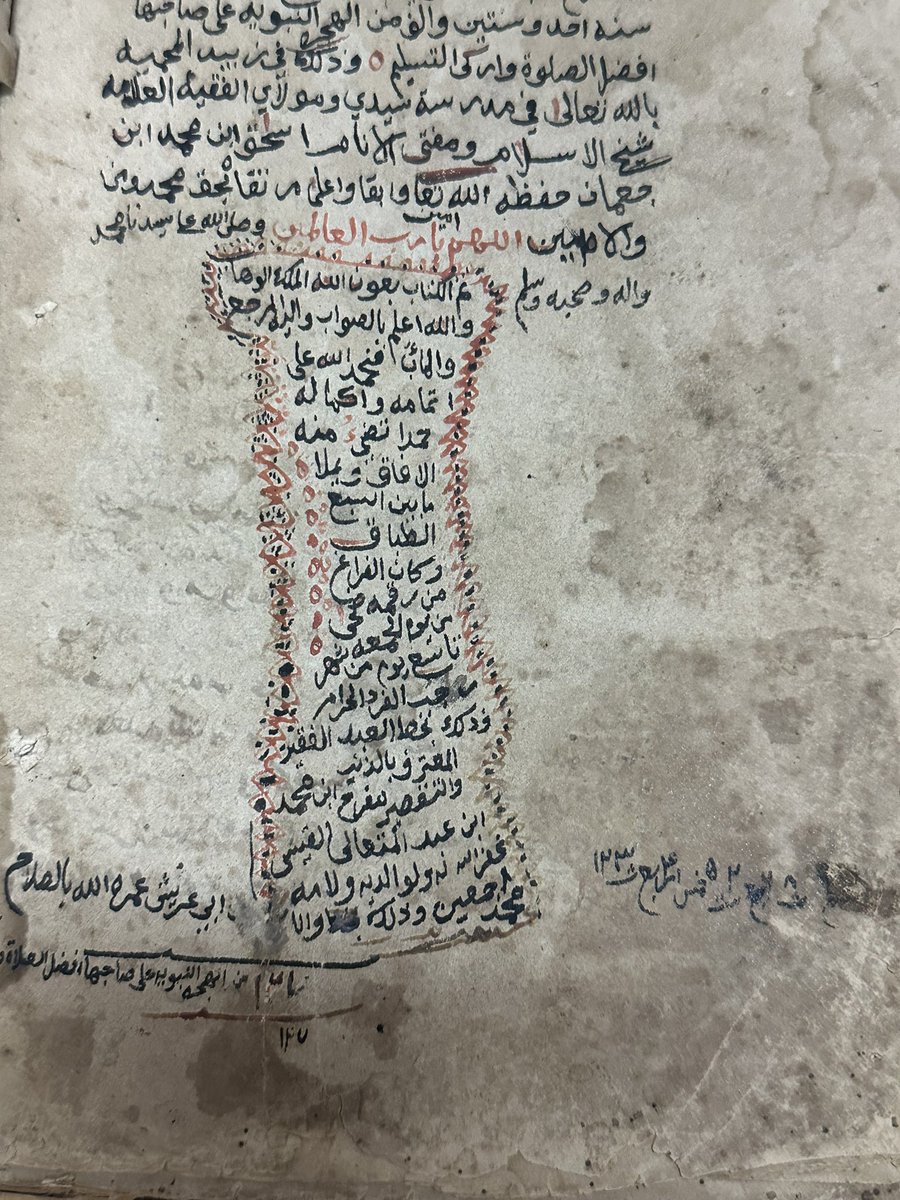 سنه احد وستين والف من الهجره النبويه على صاحبها
افضل الصلوة وازكى التسليم ه وذلك في زبيد المحميه
بالله تعالى في مدرسة سيدي ومولاي الفقيه العلامه
شيخ الاسلام ومفتى الانام اسحق ابن محمد ابن
جعمان حفظه الله تعا وابقا واعلى من نقا بحق محمد وبن
والامين امين اللهم يا رب العالمين وصلى الله على سيدنا محمد
واله وصحبه وسلم
تم الكتاب بعون الله الملك الوهاب
والله اعلم بالصواب واليه المرجع
والمأب فنحمد الله على
اتمامه واكماله
حمدا تضئ منه
الافاق ويملا
مابين السبع
الطباق
وكان الفراغ
من رقمه ضحى
من يوم الجمعه
تاسع يوم من شهر
رجب الفرد الحرام
وذلك بخط العبد الفقير
المعترف بالذنب
والتقصير مفرح ابن محمد
ابن عبد المتعالى القيسى
غفر الله له ولوالديه ولامة
محمد اجمعين وذلك
ابي عريش عمره الله بالصلاح
من الهجره النبويه على صاحبها افضل الصلاة